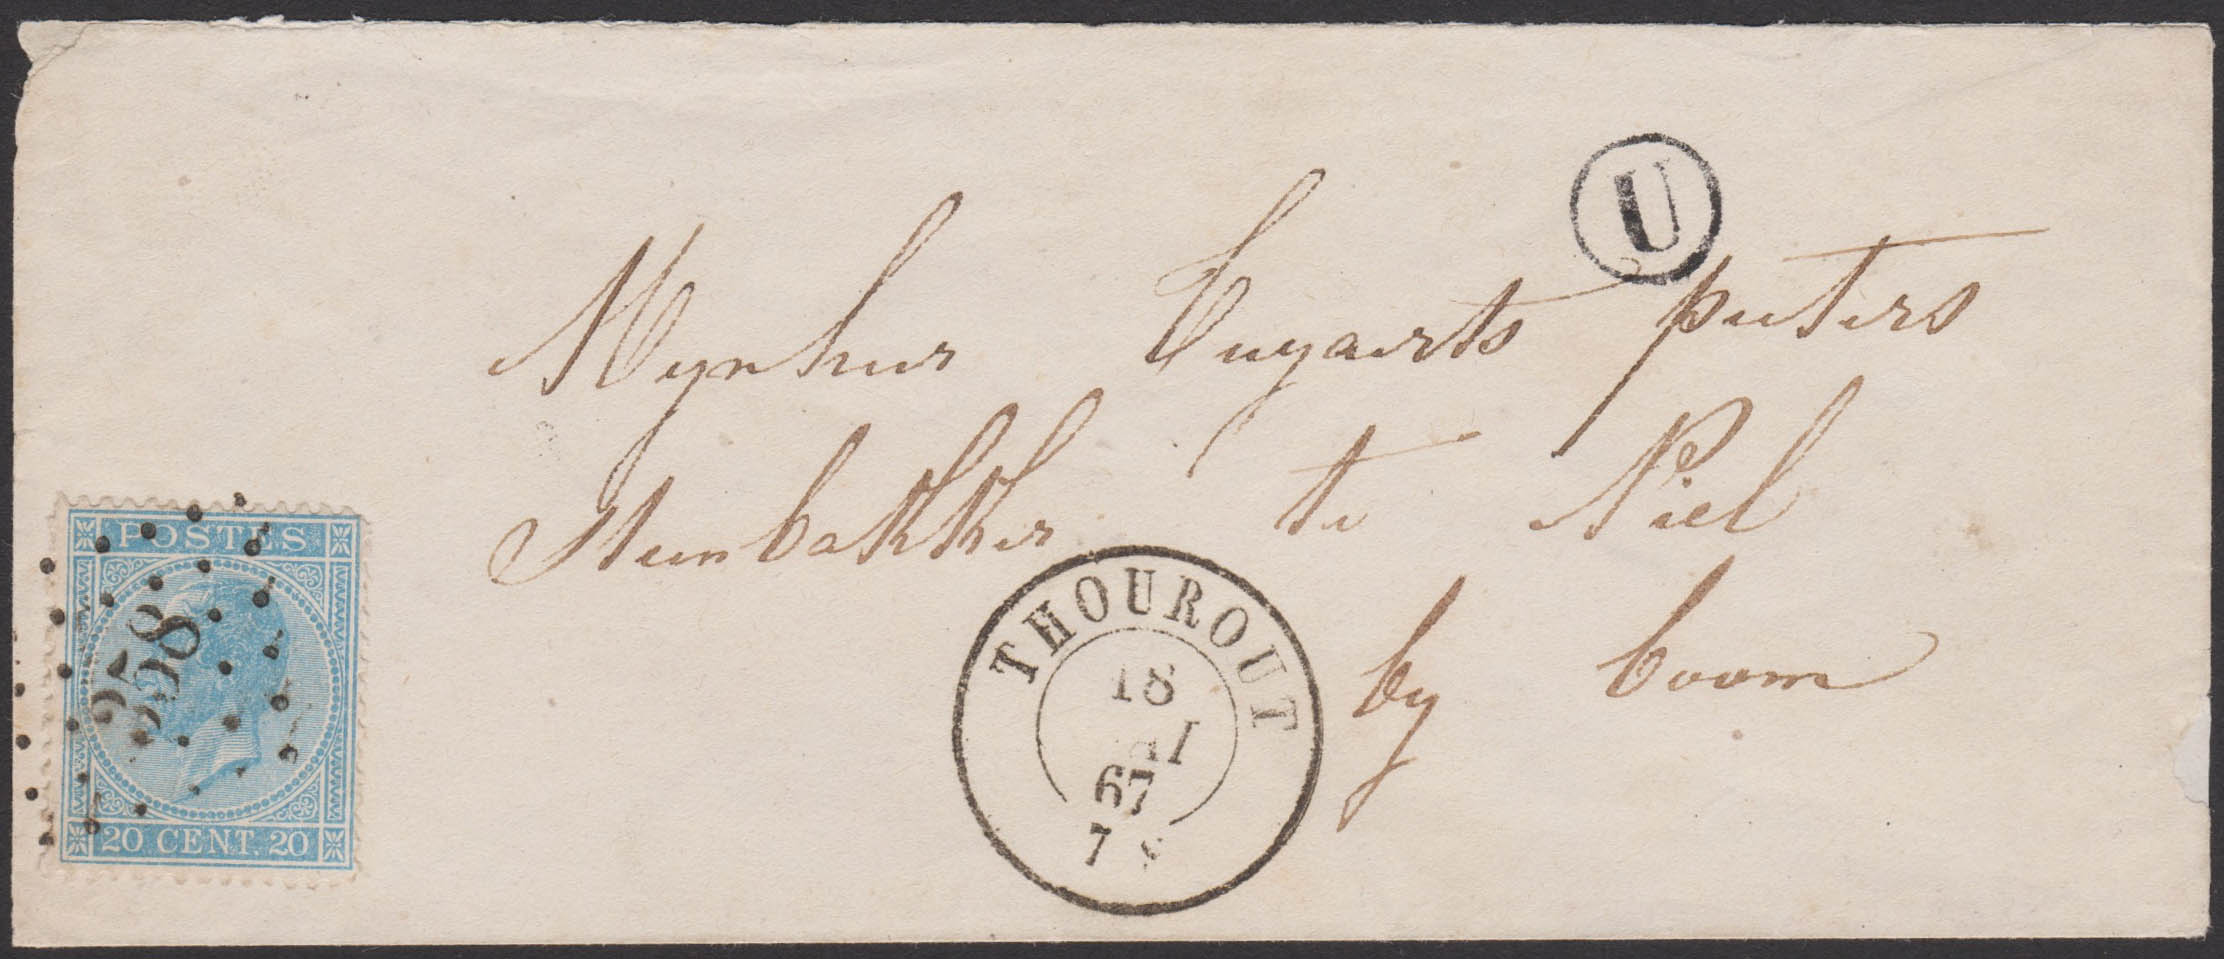 U
Mynheer Cuyaerts peeters
Steenbakker te Niel
by boom
POSTES
358
20 CENT. 20
THOUROUT
18
67
7